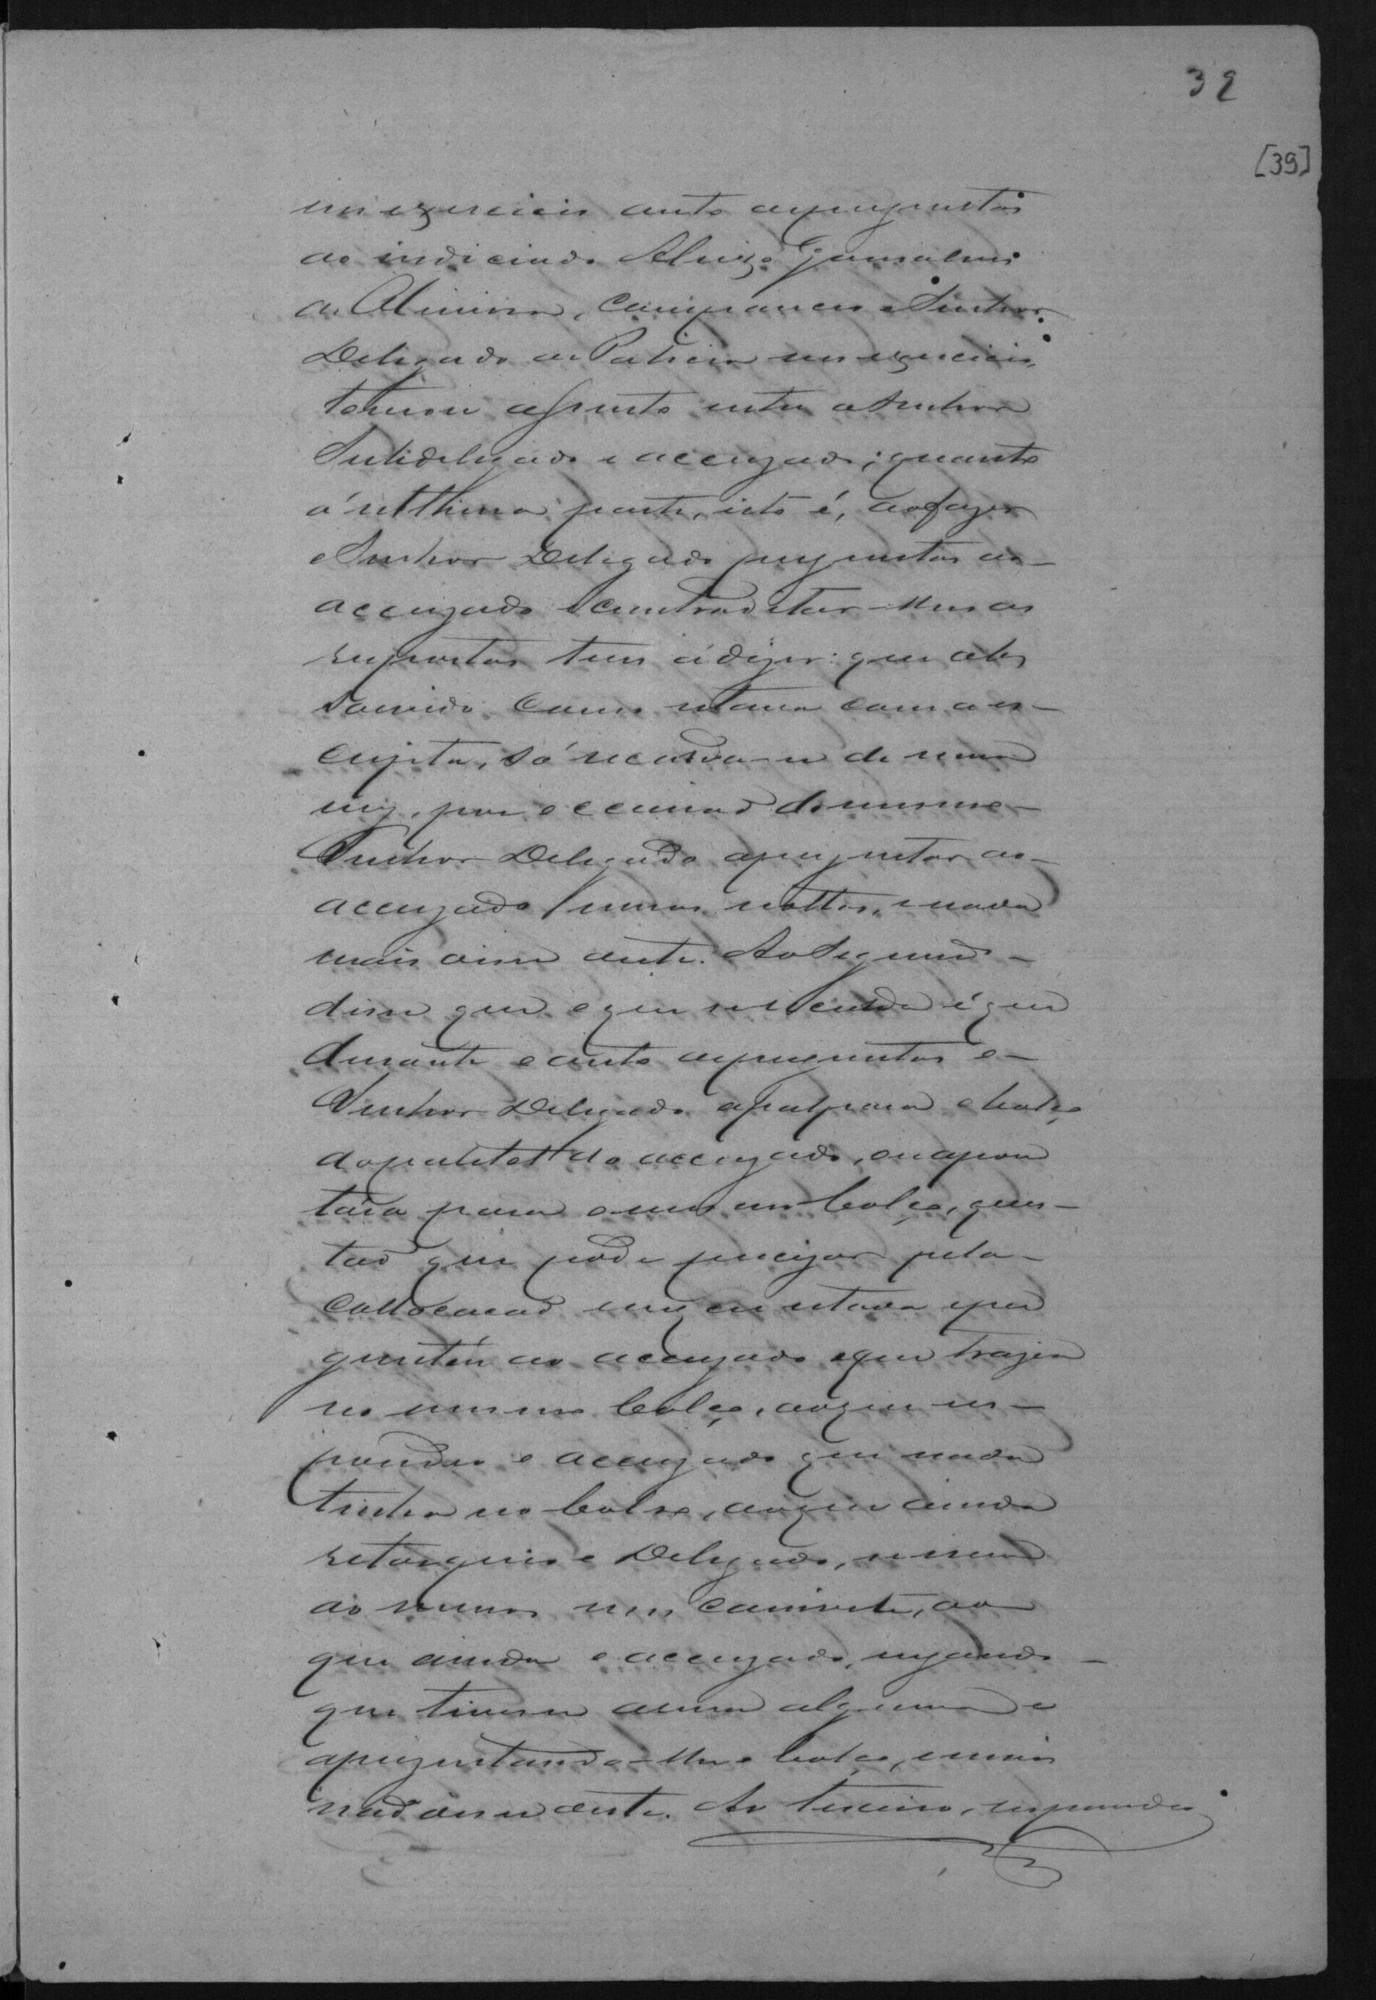 32
[39]
em exercicio auto a perguntas
ao indiciado Aluizo Gonsalves
de Oliveira, compareceu o Senhor
Delegado de Policia em exercicio,
tomou assento entre o Senhor
Subdelegado e accuzado; quanto
á ulthima parte, isto é, ao fazer
o Senhor Delegado perguntas ao
accuzado e contradictar-lhe as
respostas tem á dizer: que ab-
sorvido como estava com a es-
cripta, só recorda-se de uma
vez, por occasião do mesmo
Senhor Delegado a perguntar ao
accuzado e nada
mais disse a este. Ao Segundo
disse que o que se recorda é que
durante o auto a perguntas o
Senhor Delegado apalpara o bolço
do palitot do accuzado, ou apon
tára para o mesmo bolço, ques-
tão que pode precizar pela
collocação em que estava e per
guntou ao accuzado o que trazia
no mesmo bolço, ao que res-
pondeo o accuzado que nada
tinha no bolso, ao que ainda
retorquio o Delegado, nem
ao menos um canivete, ao
que ainda o accuzado, negando
que tivesse arma alguma e
aprezentando-lhe o bolço, e mais
não disse a este. Ao terceiro, respondeo